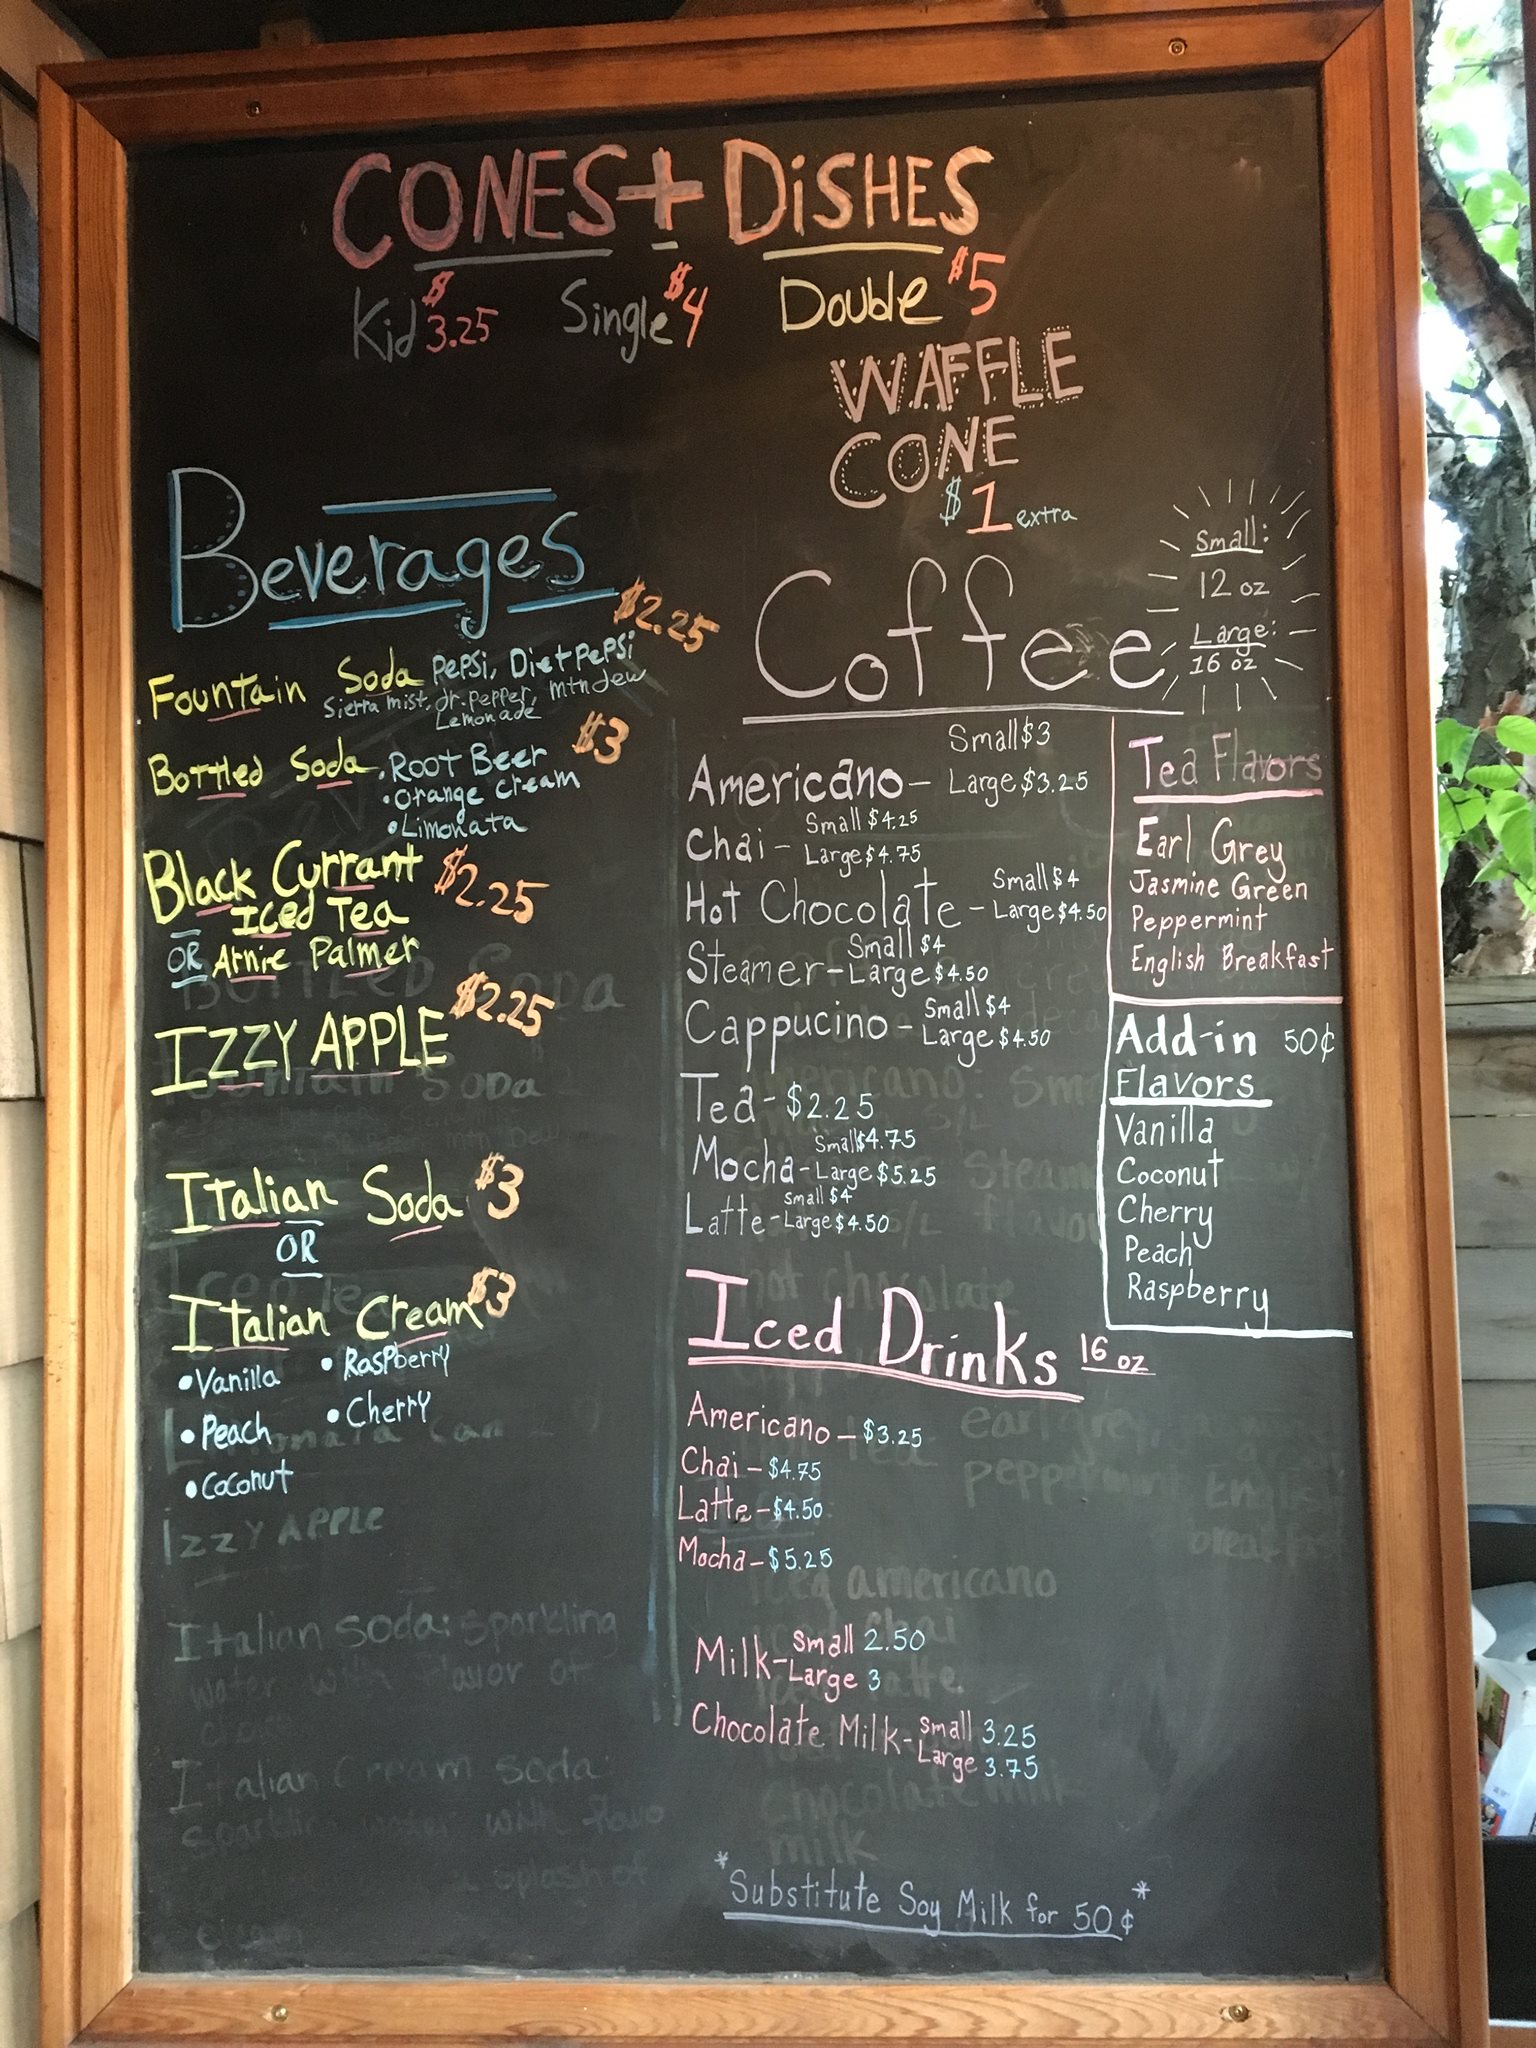 CONES + DISHES
Kid $3.25 Single $4 Double $5
WAFFLE
CONE
$1 extra
Beverages
Fountain Soda Pepsi, Diet pepsi $2.25
Sierra mist, dr. pepper, mtn dew
Lemonade
Bottled Soda • Root Beer $3
• Orange cream
• Limonata
Black Currant $2.25
Iced Tea
OR Arnie Palmer
IZZY APPLE $2.25
Italian Soda $3
OR
Italian Cream $3
• Vanilla • Raspberry
• Peach • Cherry
• Coconut
Izzy APPLE
Italian soda: sparkling
water with flavor of
Italian cream soda:
sparkling water with
splash of
cream
Coffee
Small:
12 oz
Large:
16 oz
Small $3
Americano - Large $3.25
Chai - Small $4.25
Large $4.75
Hot Chocolate - Small $4
Large $4.50
Steamer - Small $4
Large $4.50
Cappucino - Small $4
Large $4.50
Tea - $2.25
Mocha - Small $4.75
Large $5.25
Latte - Small $4
Large $4.50
Tea Flavors
Earl Grey
Jasmine Green
Peppermint
English Breakfast
Add-in 50¢
Flavors
Vanilla
Coconut
Cherry
Peach
Raspberry
Iced Drinks 16 oz
Americano - $3.25
Chai - $4.75
Latte - $4.50
Mocha - $5.25
Milk - Small 2.50
Large 3
Chocolate Milk - Small 3.25
Large 3.75
*Substitute Soy Milk for 50¢*